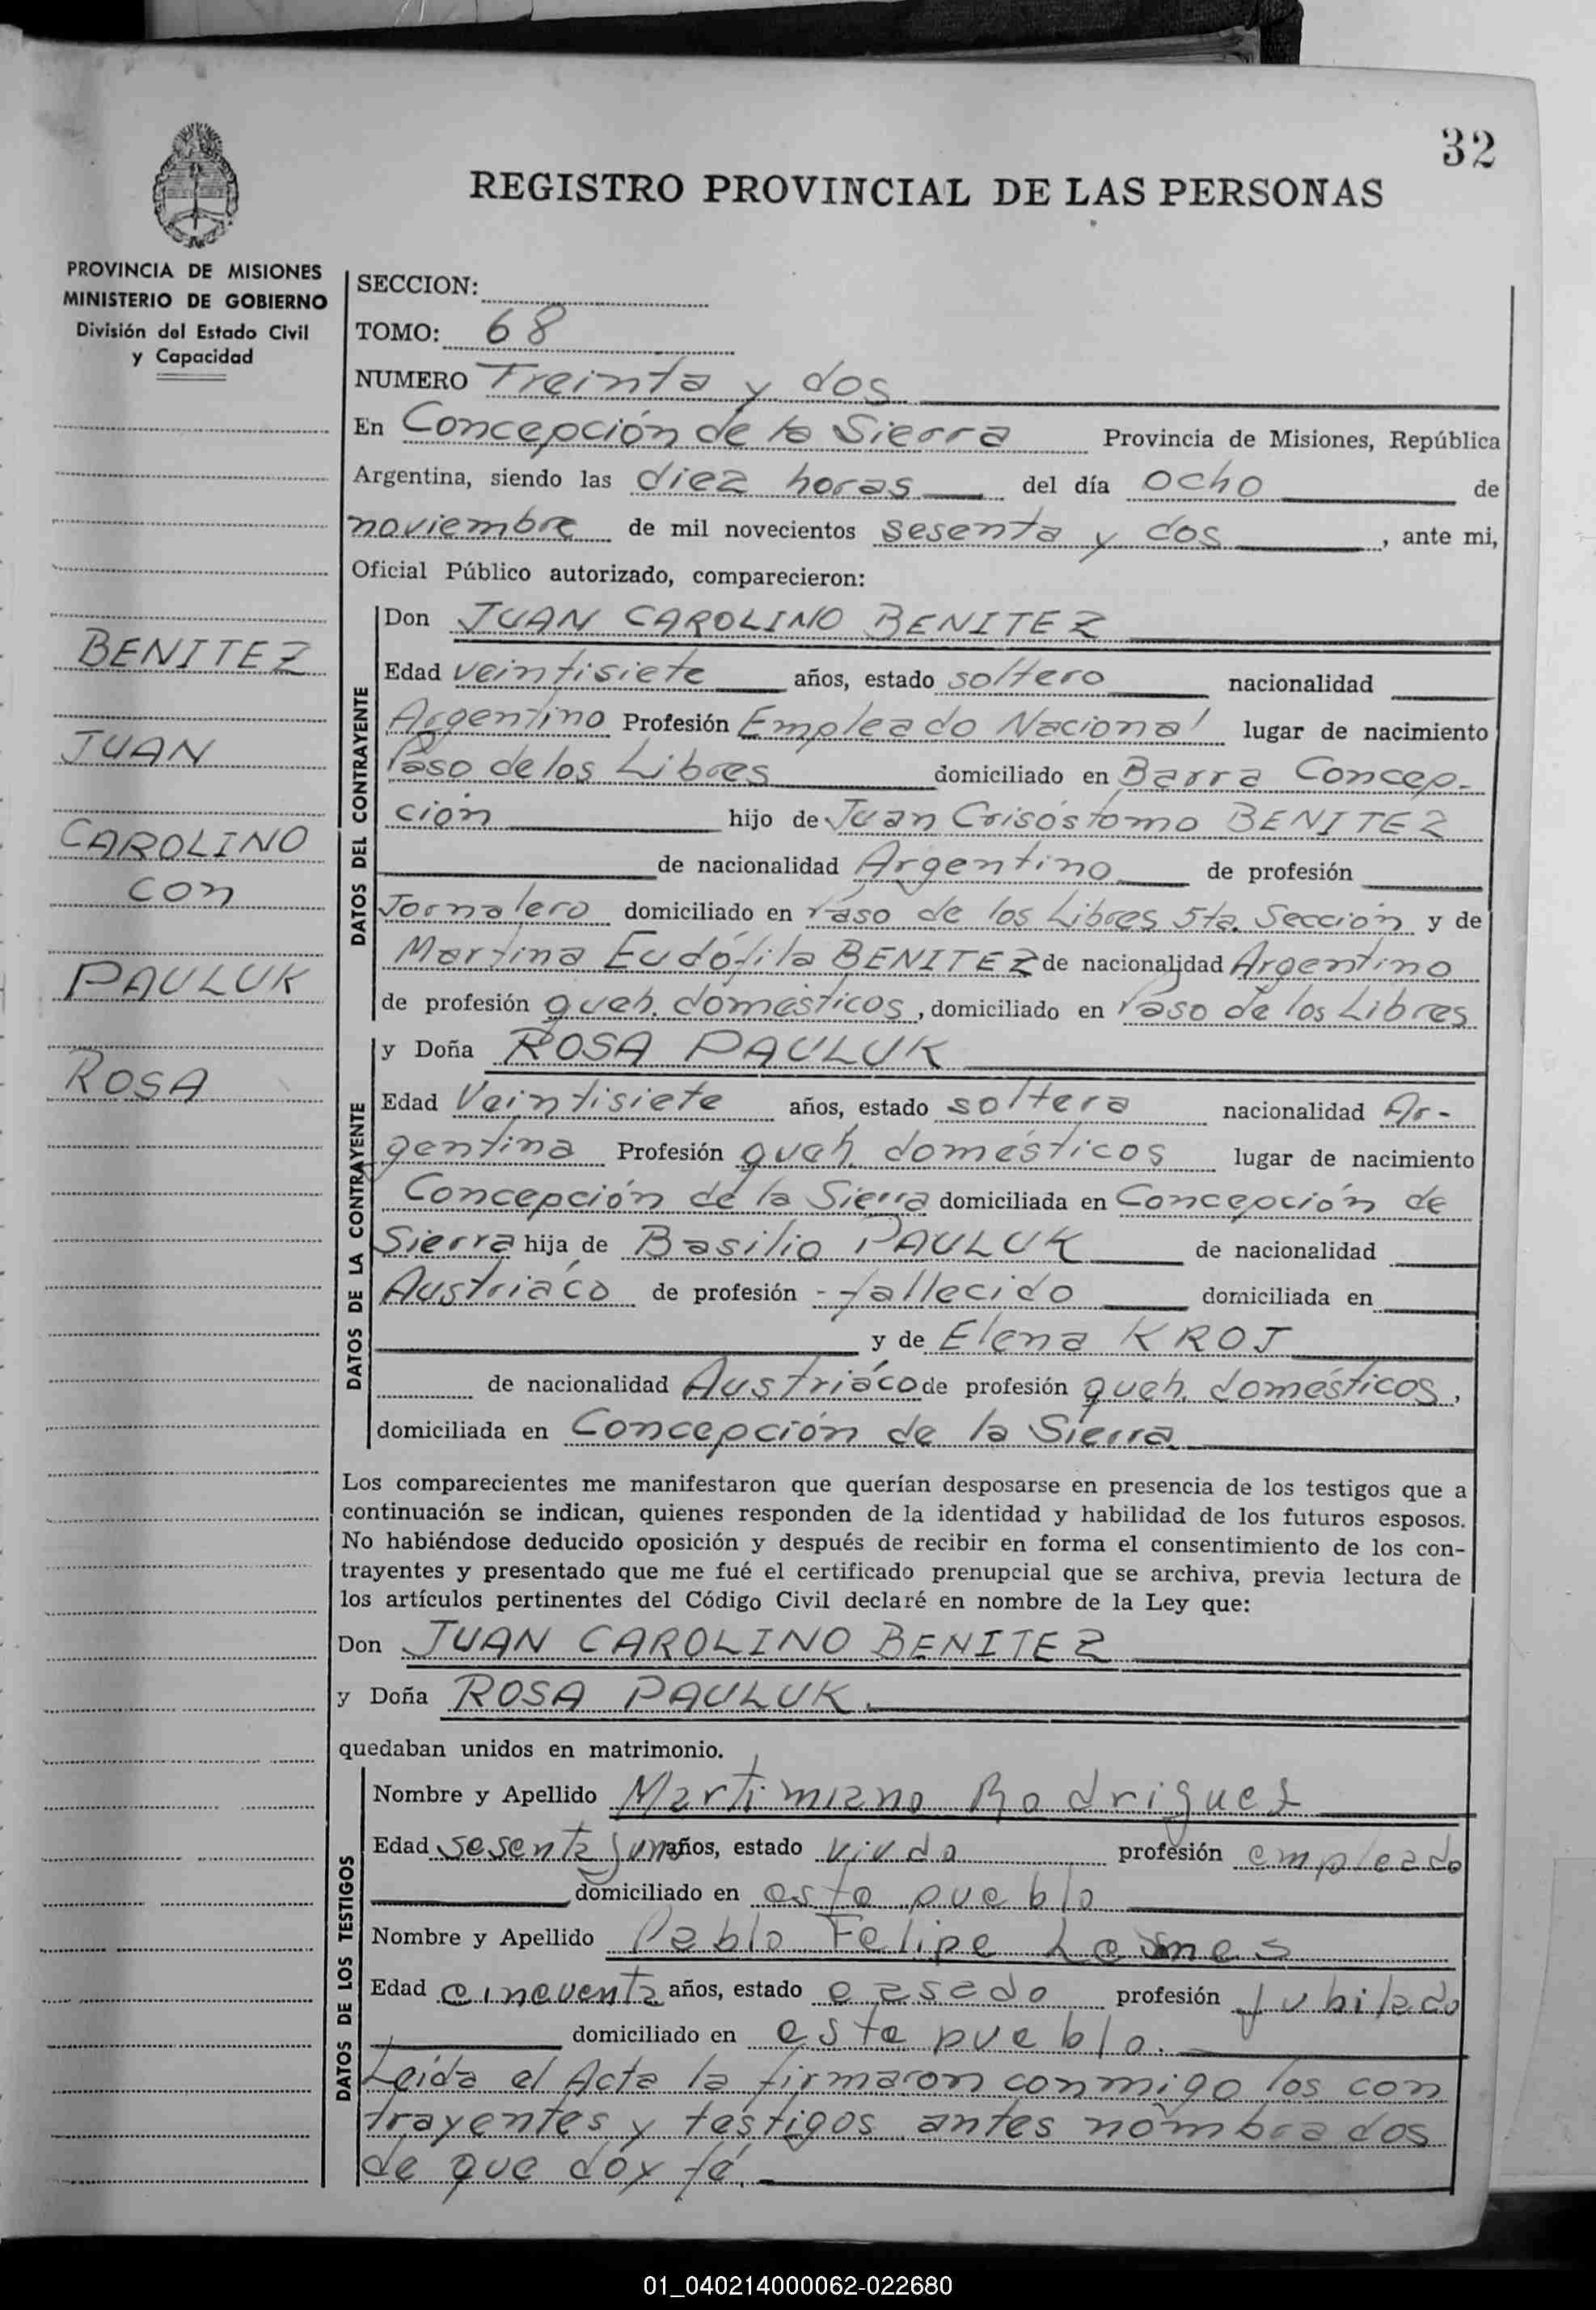 32
REGISTRO PROVINCIAL DE LAS PERSONAS
PROVINCIA DE MISIONES
MINISTERIO DE GOBIERNO
División del Estado Civil
y Capacidad
BENITEZ
JUAN
CAROLINO
con
PAULUK
ROSA
SECCION:
TOMO: 68
NUMERO Treinta y dos
En Concepción de la Sierra Provincia de Misiones, República
Argentina, siendo las diez horas del día ocho de
noviembre de mil novecientos sesenta y dos, ante mi,
Oficial Público autorizado, comparecieron:
DATOS DEL CONTRAYENTE
Don JUAN CAROLINO BENITEZ
Edad veintisiete años, estado soltero nacionalidad
Argentino Profesión Empleado Nacional lugar de nacimiento
Paso de los Libres domiciliado en Barra Concep-
ción hijo de Juan Crisóstomo BENITEZ
de nacionalidad Argentino de profesión
Jornalero domiciliado en Paso de los Libres 5ta. Sección y de
Martina Eudófila BENITEZ de nacionalidad Argentino
de profesión queh. domésticos, domiciliado en Paso de los Libres
DATOS DE LA CONTRAYENTE
y Doña ROSA PAULUK
Edad Veintisiete años, estado soltera nacionalidad Ar-
gentina Profesión queh. domésticos lugar de nacimiento
Concepción de la Sierra domiciliada en Concepción de
Sierra hija de Basilio PAULUK de nacionalidad
Austriaco de profesión -- fallecido domiciliada en
y de Elena KROJ
de nacionalidad Austriáco de profesión queh. domésticos,
domiciliada en Concepción de la Sierra
Los comparecientes me manifestaron que querían desposarse en presencia de los testigos que a
continuación se indican, quienes responden de la identidad y habilidad de los futuros esposos.
No habiéndose deducido oposición y después de recibir en forma el consentimiento de los con-
trayentes y presentado que me fué el certificado prenupcial que se archiva, previa lectura de
los artículos pertinentes del Código Civil declaré en nombre de la Ley que:
Don JUAN CAROLINO BENITEZ
y Doña ROSA PAULUK.
quedaban unidos en matrimonio.
DATOS DE LOS TESTIGOS
Nombre y Apellido Martimiano Rodriguez
Edad sesenta y un años, estado viudo profesión empleado
domiciliado en este pueblo
Nombre y Apellido Pablo Felipe
Edad cincuenta años, estado casado profesión Jubilado
domiciliado en este pueblo.
Leída el Acta la firmaron conmigo los con
trayentes y testigos antes nombrados
de que doy fé.
01_040214000062-022680